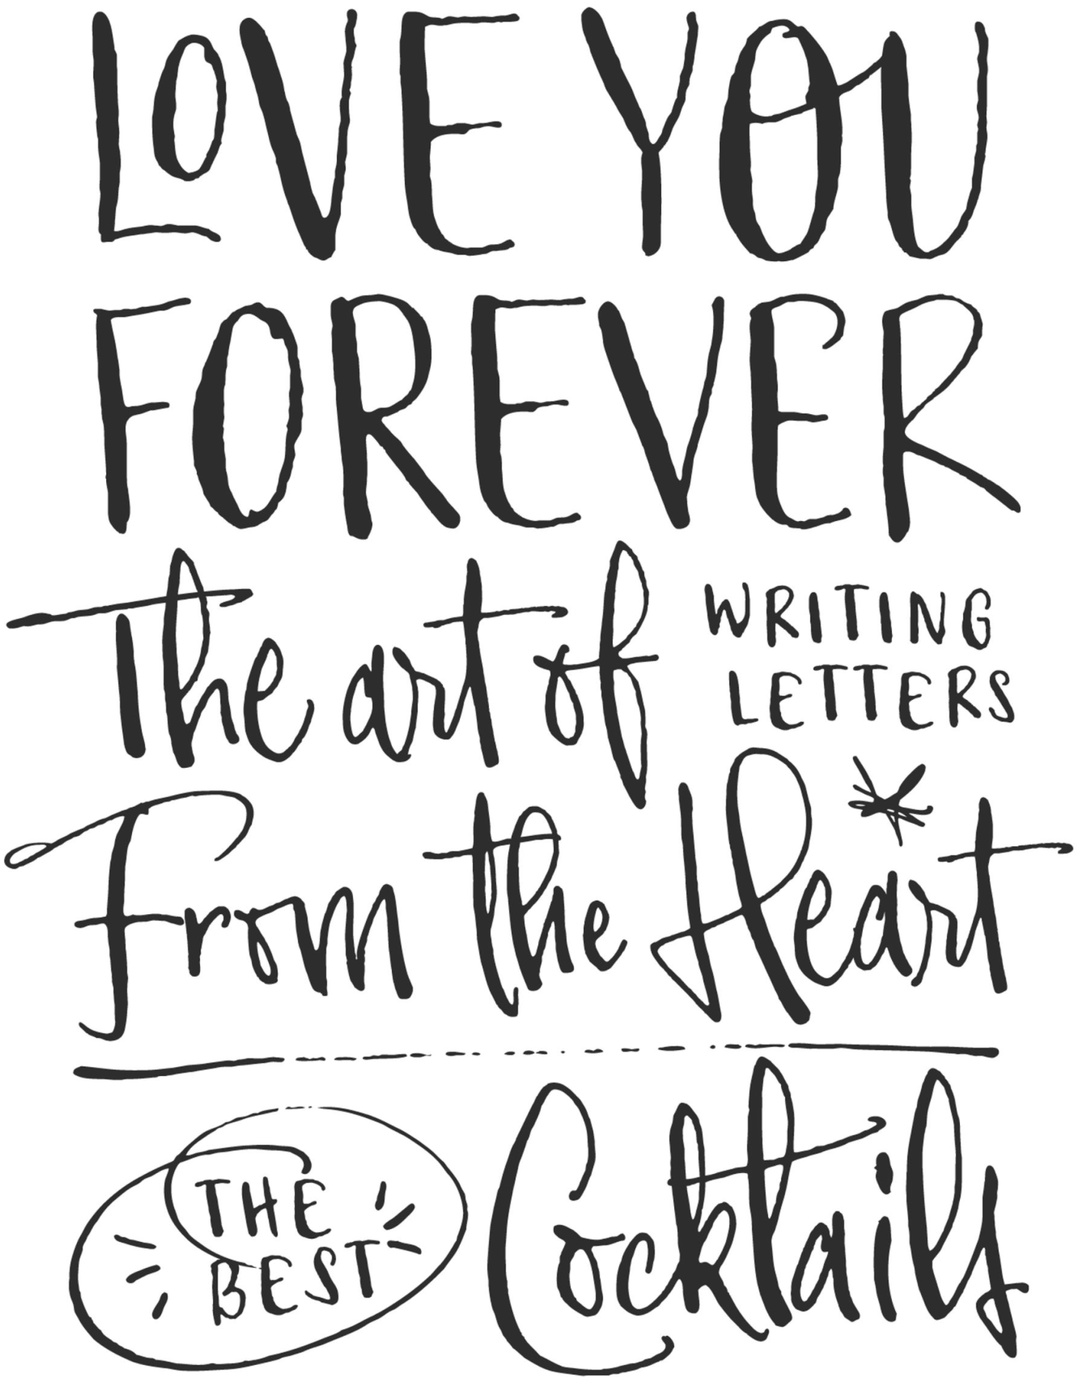 LOVE YOU
FOREVER
The art of
WRITING
LETTERS
From the Heart
THE
BEST
Cocktails